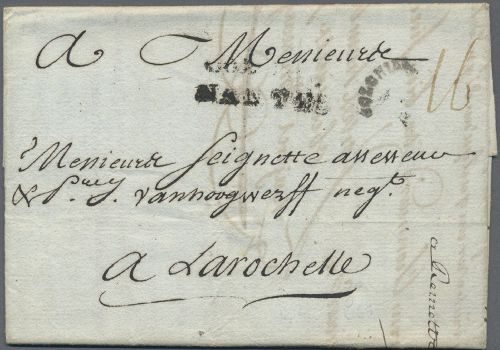 A Messieurs
COL
NANTES
COLONIES
16
Messieurs Seignette assesseur
& P. vanhoogwerff negt
A Larochelle